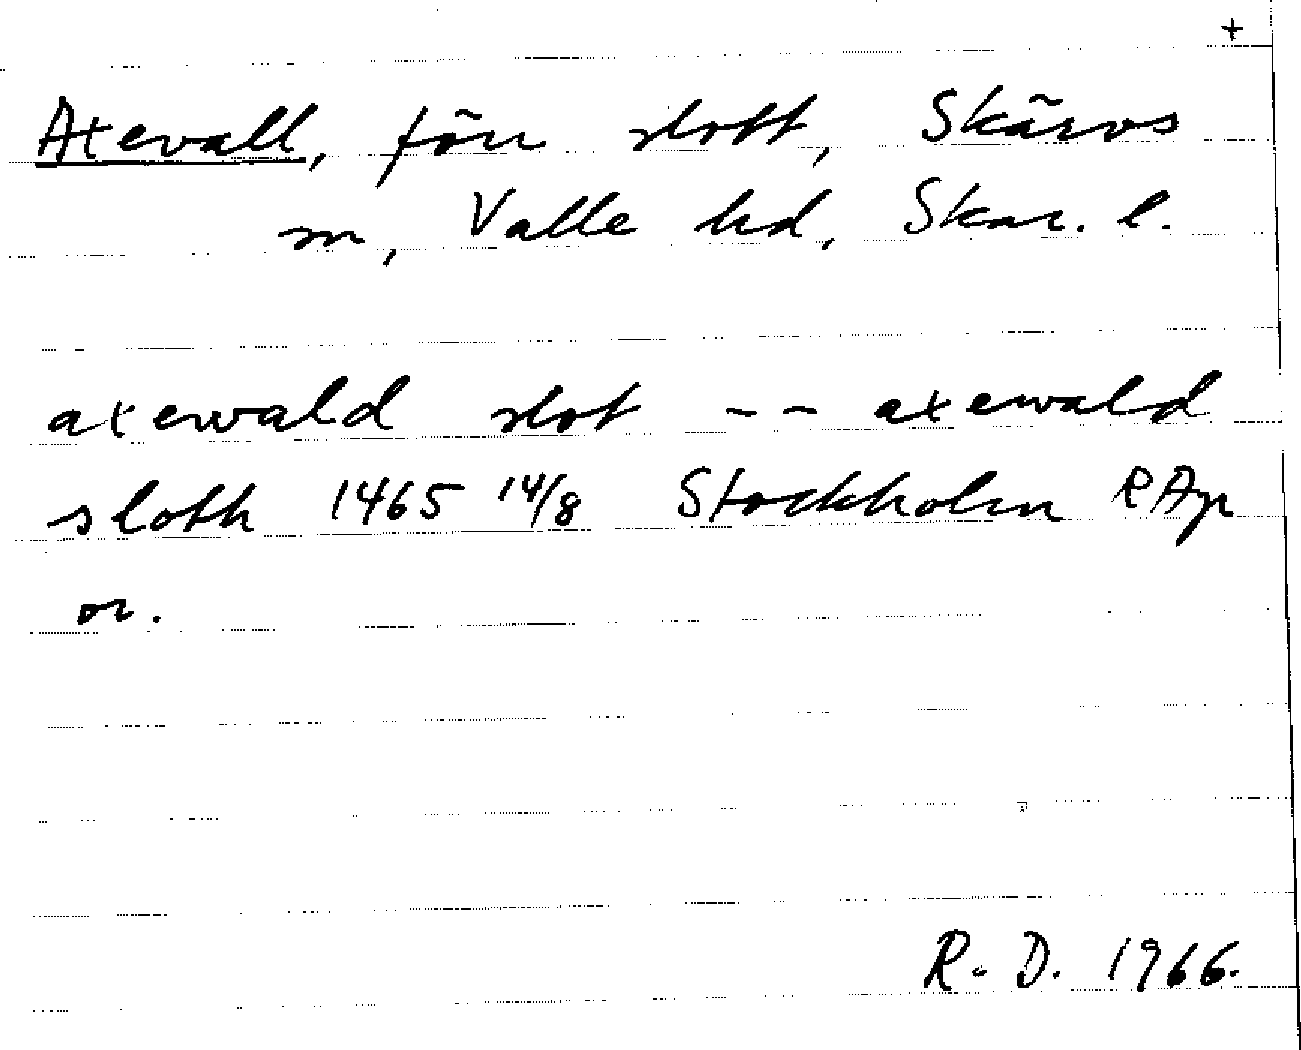 +
Axevall, förr slott, Skärvs
sn, Valle hd, Skar. l.
axewald slot -- axewald
sloth 1465 14/8 Stockholm RAp
or.
R. D. 1966.